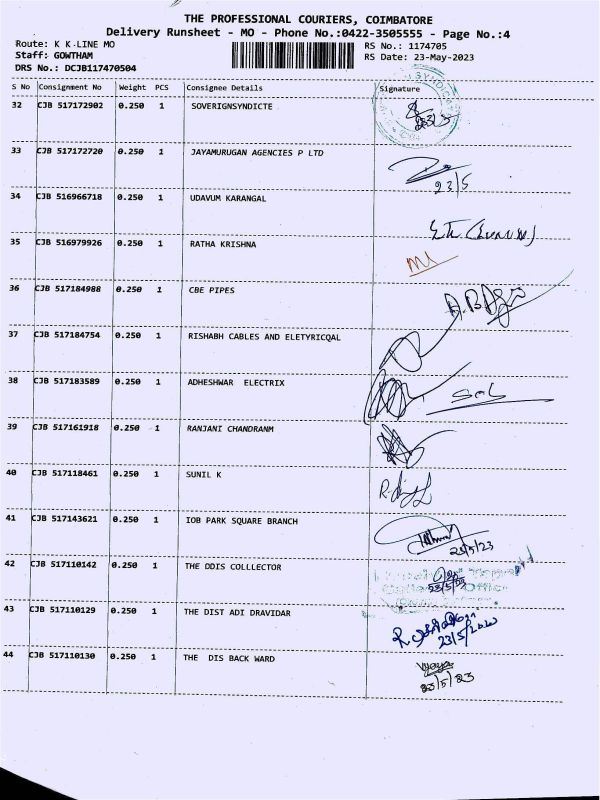 THE PROFESSIONAL COURIERS, COIMBATORE
Delivery Runsheet - MO - Phone No.:0422-3505555 - Page No.:4
Route: K K LINE MO
RS No.: 1174705
Staff: GOWTHAM
RS Date: 23-May-2023
DRS No.: DCJB117470504
S No Consignment No Weight PCS Consignee Details Signature
32 CJB 517172902 0.250 1 SOVERIGNSYNDICTE 23/5
33 CJB 517172720 0.250 1 JAYAMURUGAN AGENCIES P LTD
23/5
34 CJB 516966718 0.250 1 UDAVUM KARANGAL
35 CJB 516979926 0.250 1 RATHA KRISHNA
36 CJB 517184988 0.250 1 CBE PIPES
37 CJB 517184754 0.250 1 RISHABH CABLES AND ELETYRICQAL
38 CJB 517183589 0.250 1 ADHESHWAR ELECTRIX
39 CJB 517161918 0.250 1 RANJANI CHANDRANM
40 CJB 517118461 0.250 1 SUNIL K
41 CJB 517143621 0.250 1 IOB PARK SQUARE BRANCH
23/5/23
42 CJB 517110142 0.250 1 THE DDIS COLLLECTOR
23/5/23
43 CJB 517110129 0.250 1 THE DIST ADI DRAVIDAR
23/5/2020
44 CJB 517110130 0.250 1 THE DIS BACK WARD
23/5/23